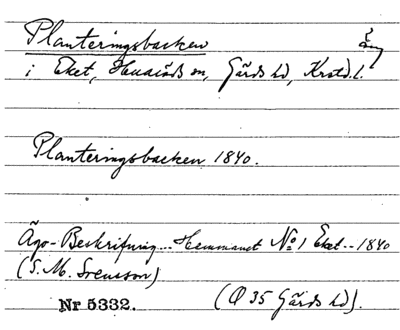 Planteringsbacken
i Eket, Huaröds sn, Gärds hd, Krstd. l.
Planteringsbacken 1840.
Ägo-Beskrifning... Hemmanet No 1 Eket... 1840
(S. M. Svensson)
Nr 5332. (Q 35 Gärds hd).